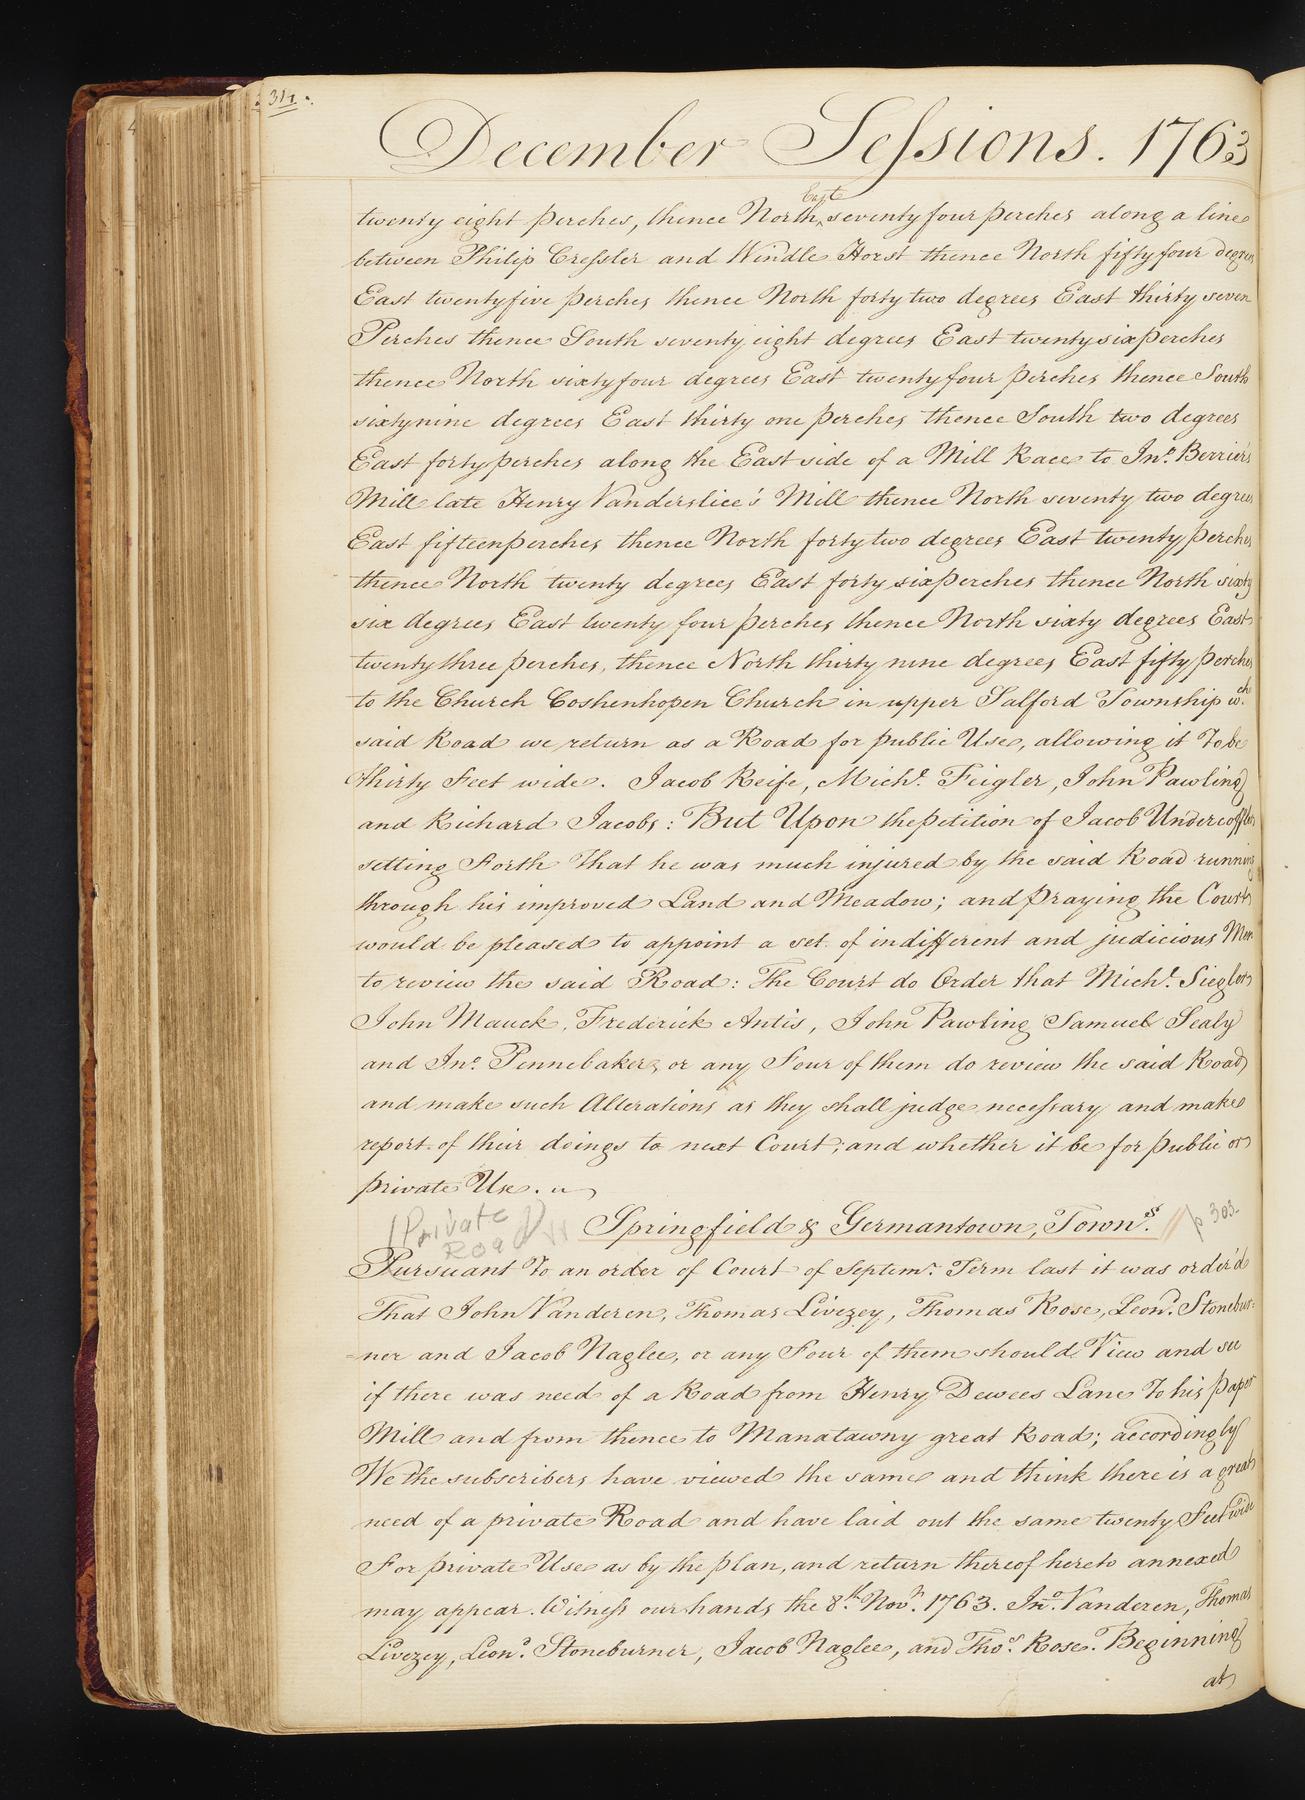 314.
December Sessions. 1763
twenty eight perches, thence North East seventy four perches along a line
between Philip Cressler and Windle Horst thence North fifty four degrees
East twenty five perches thence North forty two degrees East thirty seven
Perches thence South seventy eight degrees East twenty six perches
thence North sixty four degrees East twenty four perches thence South
sixty nine degrees East thirty one perches thence South two degrees
East forty perches along the East side of a Mill Race to Jno. Berrier's
Mill late Henry Vanderslice's Mill thence North seventy two degrees
East fifteen perches thence North forty two degrees East twenty perches
thence North twenty degrees East forty six perches thence North sixty
six degrees East twenty four perches thence North sixty degrees East
twenty three perches, thence North thirty nine degrees East fifty perches
to the Church Coshenhopen Church in upper Salford Township wch.
said Road we return as a Road for public Use, allowing it To be
thirty Feet wide. Jacob Reife, Michl. Feigler, John Pawling
and Richard Jacobs: But Upon the petition of Jacob Undercoffler
setting Forth That he was much injured by the said Road running
through his improved Land and Meadow; and praying the Court
would be pleased to appoint a set of indifferent and judicious Men
to review the said Road: The Court do Order that Michl. Siegler
John Mauck, Frederick Antis, John Pawling Samuel Sealy
and Jno. Pennebaker, or any Four of them do review the said Road
and make such Alterations as they shall judge necessary and make
report of their doings to next Court; and whether it be for public or
private Use.
(Private Road) Springfield & Germantown, Towns. // p 303.
Pursuant To an order of Court of Septemr. Term last it was order'd
That John Vanderen, Thomas Livezey, Thomas Rose, Leond. Stonebur=
=ner and Jacob Naglee, or any Four of them should View and see
if there was need of a Road from Henry Dewees Lane To his paper
Mill and from thence to Manatawny great Road; accordingly
We the subscribers have viewed the same and think there is a great
need of a private Road and have laid out the same twenty Feet wide
For private Use as by the plan, and return thereof hereto annexed
may appear. Witness our hands the 8th. Novr. 1763. Jno. Vanderen, Thomas
Livezey, Leond. Stoneburner, Jacob Naglee, and Thos. Rose. Beginning
at